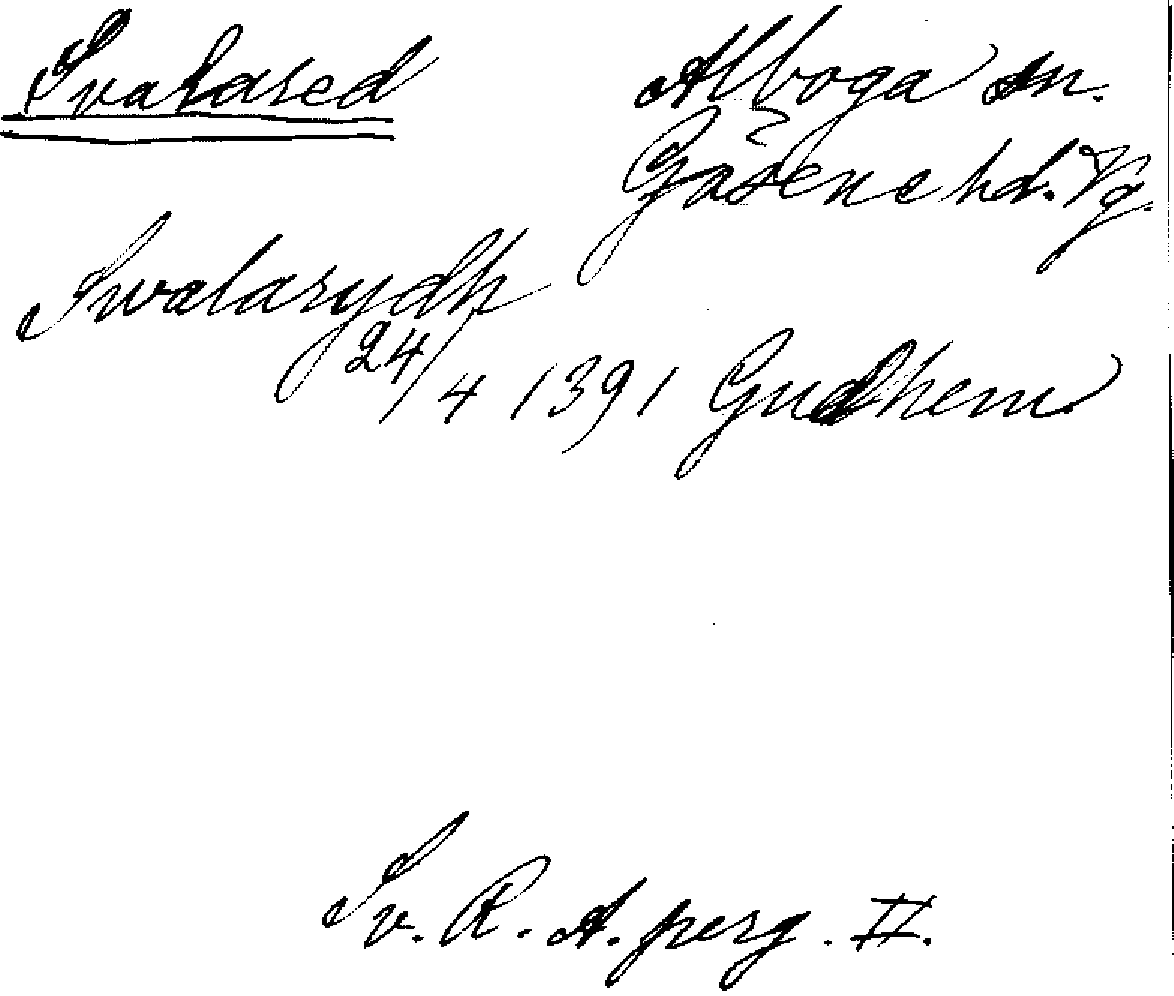 Svalared
Alboga sn.
Gäsene hd. Vg.
Swalarydh
24/4 1391 Gudhem
Sv. R. A. perg. II.